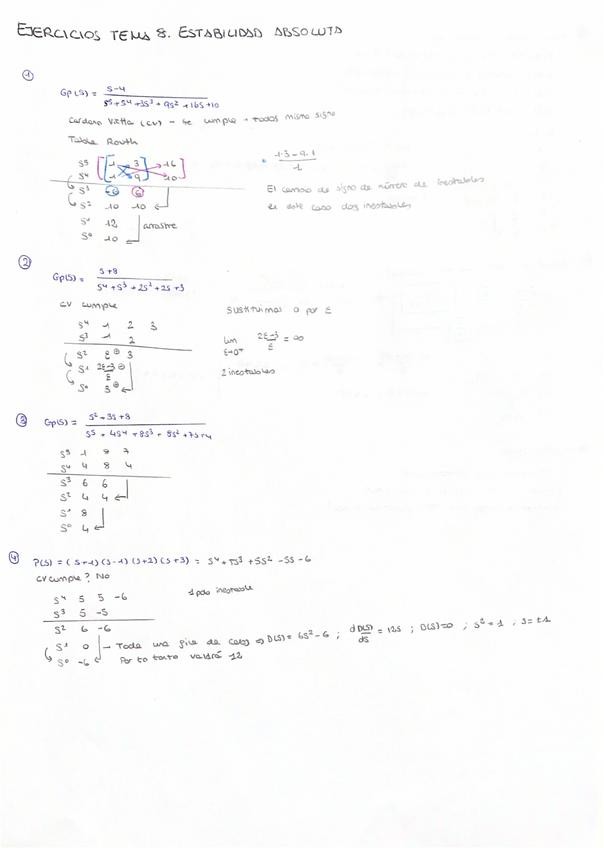 EJERCICIOS TEMA 8. ESTABILIDAD ABSOLUTA
①
Gp(S) = s-4 / s5+s4+3s3+9s2+16s+10
(CV) - se cumple - todos mismo signo
Tabla Routh
s5 1 3 16
s4 1 9 10
s3 -6 6
s2 10 10
s1 12 arrastre
s0 10
* 1·3-9·1 / 1
El cambio de signo de número de inestables
es este caso dos inestables
②
Gp(S) = s+8 / s4+s3+2s2+2s+3
CV cumple
s4 1 2 3
s3 1 2
s2 ε ⊕ 3
s1 2ε-3 / ε ⊖
s0 3 ⊕
Sustituimos 0 por ε
lim ε→0+ 2ε-3 / ε = ∞
2 inestables
③ Gp(S) = s2+3s+8 / s5+4s4+8s3+8s2+7s+4
s5 1 8 7
s4 4 8 4
s3 6 6
s2 4 4
s1 8
s0 4
④ P(s) = (s+1)(s-1)(s+2)(s+3) = s4+5s3+5s2-5s-6
CV cumple? No
s4 5 5 -6
s3 5 -5
s2 6 -6
s1 0 - Toda una fila de ceros => D(s) = 6s2-6 ; dD(s)/ds = 12s ; D(s)=0 ; s2=1 , s=±1
s0 -6 Por lo tanto valdrá 12
1 polo inestable